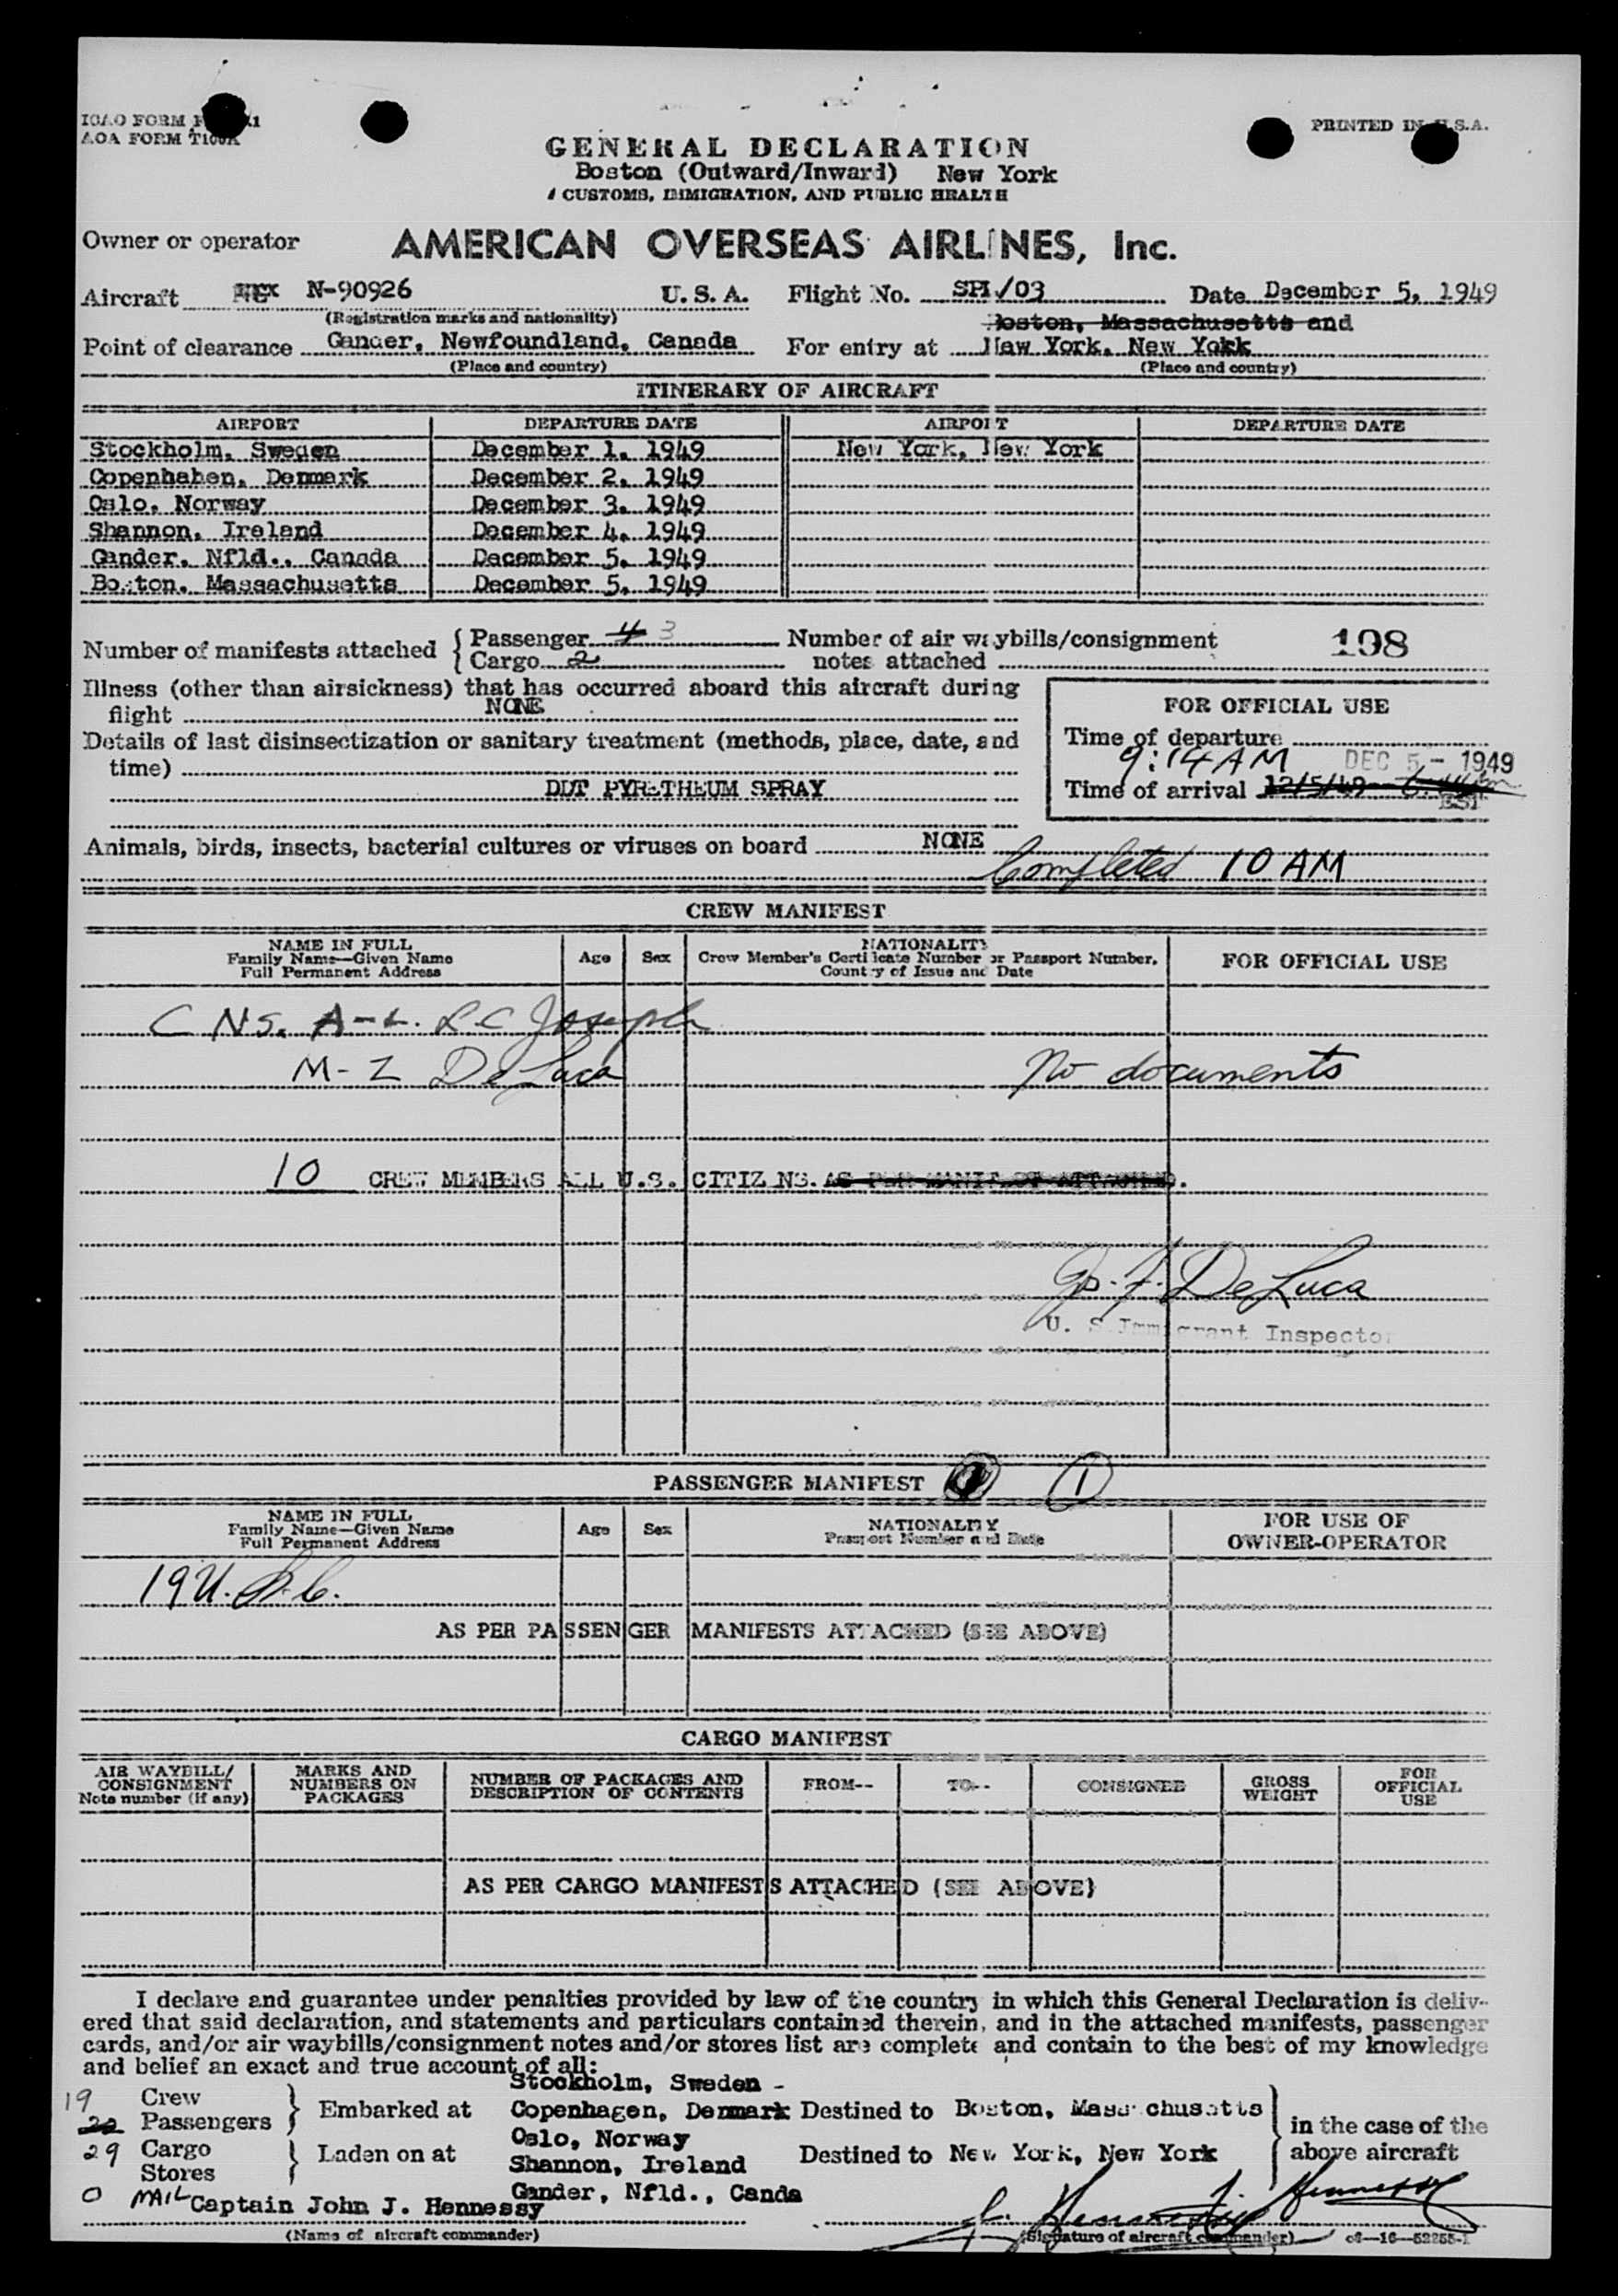 ICAO FORM
AOA FORM
PRINTED IN U.S.A.
GENERAL DECLARATION
Boston (Outward/Inward) New York
CUSTOMS, IMMIGRATION, AND PUBLIC HEALTH
Owner or operator AMERICAN OVERSEAS AIRLINES, Inc.
Aircraft N-90926 U.S.A. Flight No. SPL/03 Date December 5, 1949
(Registration marks and nationality)
Boston, Massachusetts and
Point of clearance Gander, Newfoundland, Canada For entry at New York, New Yokk
(Place and country) (Place and country)
ITINERARY OF AIRCRAFT
AIRPORT DEPARTURE DATE AIRPORT DEPARTURE DATE
Stockholm, Sweden December 1, 1949 New York, New York
Copenhahen, Denmark December 2, 1949
Oslo, Norway December 3, 1949
Shannon, Ireland December 4, 1949
Gander, Nfld., Canada December 5, 1949
Boston, Massachusetts December 5, 1949
Number of manifests attached { Passenger 4 3 Number of air waybills/consignment 198
Cargo 2 notes attached
Illness (other than airsickness) that has occurred aboard this aircraft during
flight NONE
FOR OFFICIAL USE
Details of last disinsectization or sanitary treatment (methods, place, date, and
time)
DDT PYRETHEUM SPRAY
Time of departure
9:14 AM DEC 5 - 1949
Time of arrival 12/5/49
EST
Animals, birds, insects, bacterial cultures or viruses on board NONE
Completed 10 AM
CREW MANIFEST
NAME IN FULL
Family Name—Given Name
Full Permanent Address
Age Sex
NATIONALITY
Crew Member's Certificate Number or Passport Number,
Country of Issue and Date
FOR OFFICIAL USE
C NS. A-L. L C Joseph
M-Z DeLuca No documents
10 CREW MEMBERS ALL U.S. CITIZ NS. AS PER MANIFEST ATTACHED.
Jo. F. DeLuca
U. S. Immigrant Inspector
PASSENGER MANIFEST 1
NAME IN FULL
Family Name—Given Name
Full Permanent Address
Age Sex
NATIONALITY
Passport Number and Date
FOR USE OF
OWNER-OPERATOR
19 U.S.C.
AS PER PASSENGER MANIFESTS ATTACHED (SEE ABOVE)
CARGO MANIFEST
AIR WAYBILL/
CONSIGNMENT
Note number (if any)
MARKS AND
NUMBERS ON
PACKAGES
NUMBER OF PACKAGES AND
DESCRIPTION OF CONTENTS
FROM-- TO-- CONSIGNEE
GROSS
WEIGHT
FOR
OFFICIAL
USE
AS PER CARGO MANIFESTS ATTACHED (SEE ABOVE)
I declare and guarantee under penalties provided by law of the country in which this General Declaration is deliv-
ered that said declaration, and statements and particulars contained therein, and in the attached manifests, passenger
cards, and/or air waybills/consignment notes and/or stores list are complete and contain to the best of my knowledge
and belief an exact and true account of all:
Stockholm, Sweden -
19 Crew
22 Passengers } Embarked at Copenhagen, Denmark Destined to Boston, Massachusetts
Oslo, Norway in the case of the
29 Cargo
Stores } Laden on at Shannon, Ireland Destined to New York, New York above aircraft
Gander, Nfld., Canda
0 MAIL Captain John J. Hennessy
J. Hennessy
(Name of aircraft commander) (Signature of aircraft commander) 16—52255-1